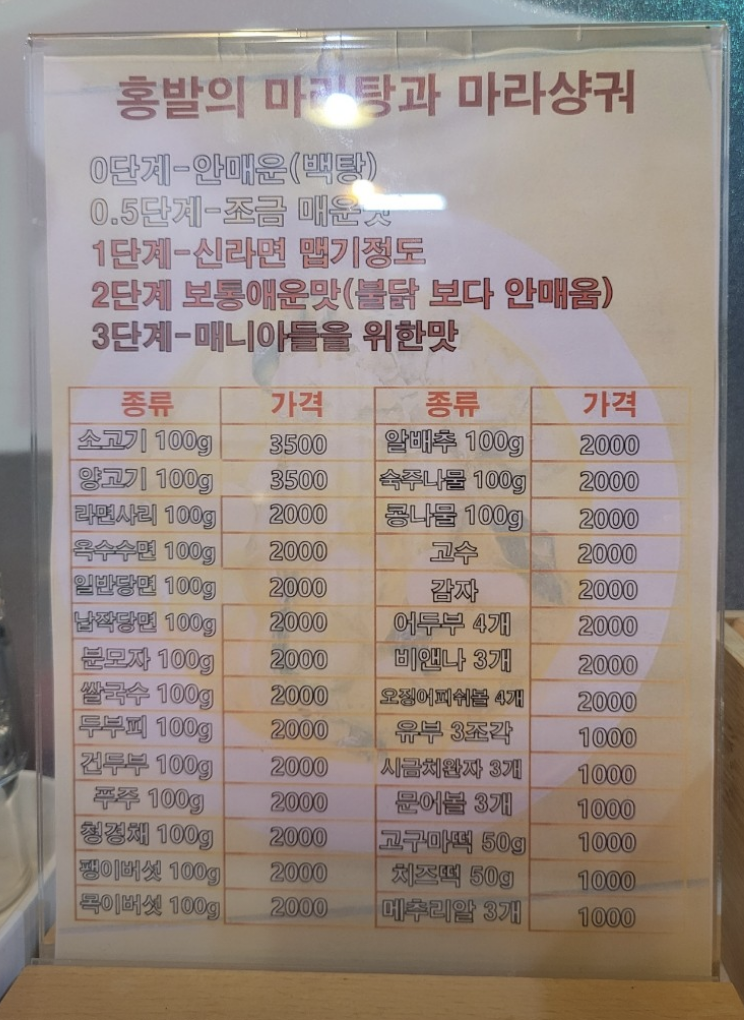 홍발의 마라탕과 마라샹궈
0단계-안매운(백탕)
0.5단계-조금 매운맛
1단계-신라면 맵기정도
2단계 보통애운맛(불닭 보다 안매움)
3단계-매니아들을 위한맛
종류 가격 종류 가격
소고기 100g 3500 알배추 100g 2000
양고기 100g 3500 숙주나물 100g 2000
라면사리 100g 2000 콩나물 100g 2000
옥수수면 100g 2000 고수 2000
일반당면 100g 2000 감자 2000
납작당면 100g 2000 어두부 4개 2000
분모자 100g 2000 비앤나 3개 2000
쌀국수 100g 2000 오징어피쉬볼 4개 2000
두부피 100g 2000 유부 3조각 1000
건두부 100g 2000 시금치완자 3개 1000
푸주 100g 2000 문어볼 3개 1000
청경채 100g 2000 고구마떡 50g 1000
팽이버섯 100g 2000 치즈떡 50g 1000
목이버섯 100g 2000 메추리알 3개 1000